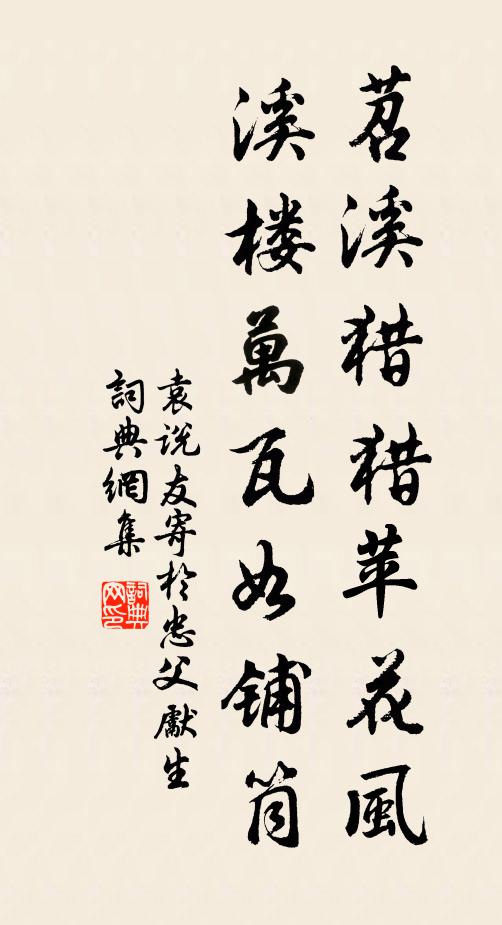 苕溪猎猎苹花風
溪楼萬瓦如铺筒
袁说友寄於忠父獻生
詞典網集
詞典网印